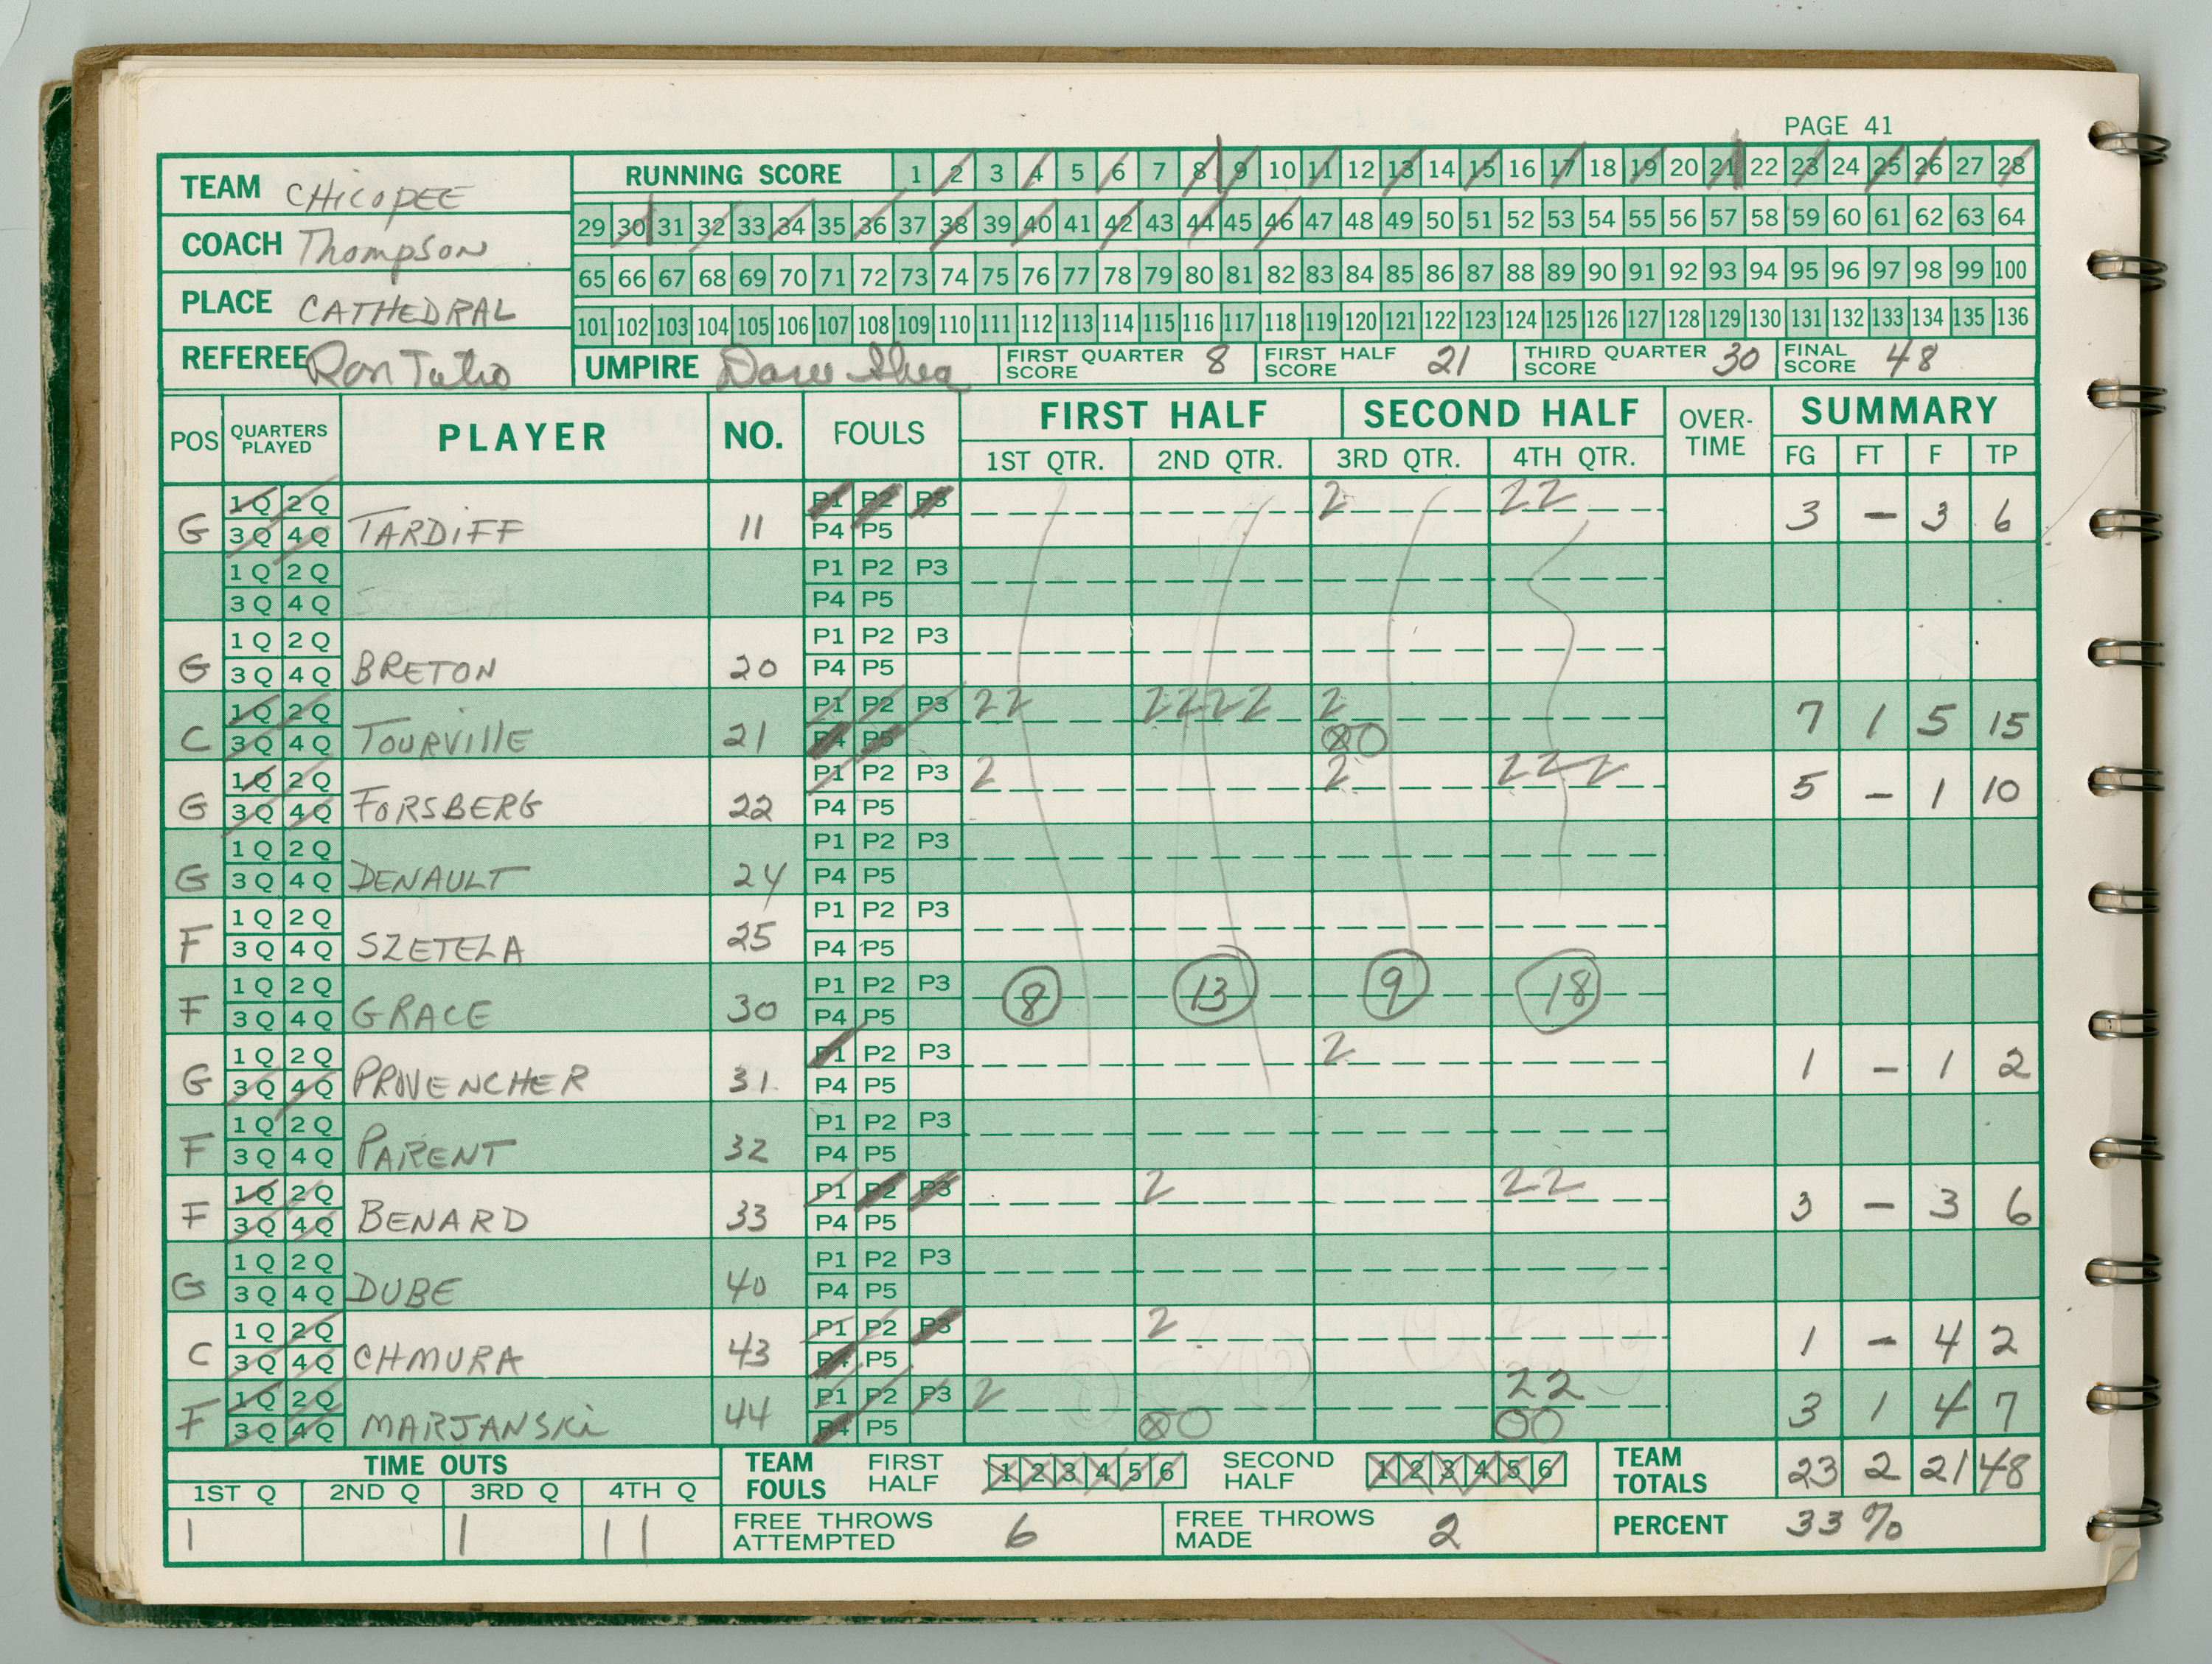 PAGE 41
TEAM CHICOPEE
COACH Thompson
PLACE CATHEDRAL
REFEREE Ron
RUNNING SCORE 1 2 3 4 5 6 7 8 9 10 11 12 13 14 15 16 17 18 19 20 21 22 23 24 25 26 27 28
29 30 31 32 33 34 35 36 37 38 39 40 41 42 43 44 45 46 47 48 49 50 51 52 53 54 55 56 57 58 59 60 61 62 63 64
65 66 67 68 69 70 71 72 73 74 75 76 77 78 79 80 81 82 83 84 85 86 87 88 89 90 91 92 93 94 95 96 97 98 99 100
101 102 103 104 105 106 107 108 109 110 111 112 113 114 115 116 117 118 119 120 121 122 123 124 125 126 127 128 129 130 131 132 133 134 135 136
UMPIRE Dave Shea FIRST QUARTER SCORE 8 FIRST HALF SCORE 21 THIRD QUARTER SCORE 30 FINAL SCORE 48
POS QUARTERS PLAYED PLAYER NO. FOULS FIRST HALF SECOND HALF OVER-TIME SUMMARY
1ST QTR. 2ND QTR. 3RD QTR. 4TH QTR. FG FT F TP
1Q 2Q P1 P2 P3 2 22
G 3Q 4Q TARDIFF 11 P4 P5 3 – 3 6
1Q 2Q P1 P2 P3
3Q 4Q P4 P5
1Q 2Q P1 P2 P3
G 3Q 4Q BRETON 20 P4 P5
1Q 2Q P1 P2 P3 22 2222 2
C 3Q 4Q TOURVILLE 21 P4 P5 ⊗O 7 1 5 15
1Q 2Q P1 P2 P3 2 2 222
G 3Q 4Q FORSBERG 22 P4 P5 5 – 1 10
1Q 2Q P1 P2 P3
G 3Q 4Q DENAULT 24 P4 P5
1Q 2Q P1 P2 P3
F 3Q 4Q SZETELA 25 P4 P5
1Q 2Q P1 P2 P3 8 13 9 18
F 3Q 4Q GRACE 30 P4 P5
1Q 2Q P1 P2 P3 2
G 3Q 4Q PROVENCHER 31 P4 P5 1 – 1 2
1Q 2Q P1 P2 P3
F 3Q 4Q PARENT 32 P4 P5
1Q 2Q P1 P2 P3 2 22
F 3Q 4Q BENARD 33 P4 P5 3 – 3 6
1Q 2Q P1 P2 P3
G 3Q 4Q DUBE 40 P4 P5
1Q 2Q P1 P2 P3 2
C 3Q 4Q CHMURA 43 P4 P5 1 – 4 2
1Q 2Q P1 P2 P3 2 22
F 3Q 4Q MARJANSKi 44 P4 P5 ⊗O OO 3 1 4 7
TIME OUTS TEAM FOULS FIRST HALF 1 2 3 4 5 6 SECOND HALF 1 2 3 4 5 6 TEAM TOTALS 23 2 21 48
1ST Q 2ND Q 3RD Q 4TH Q
1 1 11 FREE THROWS ATTEMPTED 6 FREE THROWS MADE 2 PERCENT 33%